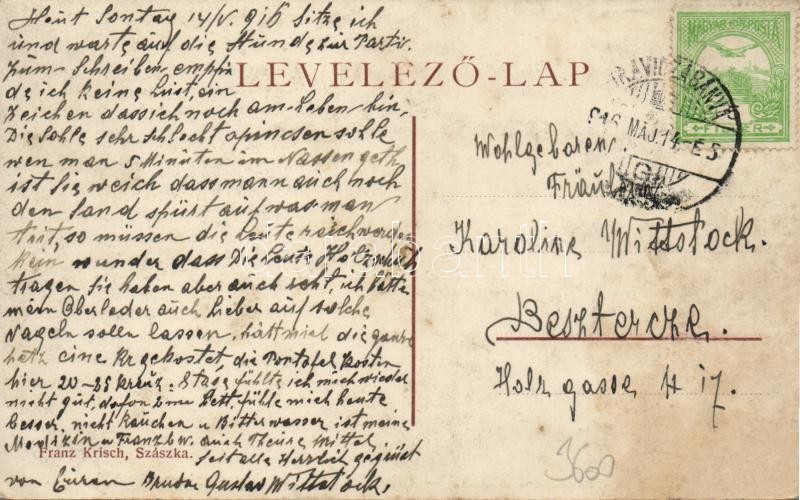 Heut Sontag 14/V. 916 Sitze ich
und warte auf die Stunde zur Partie.
Zum Schreiben empfin
de ich keine Lust, ein
Zeichen dass ich noch am Leben bin,
Die Sohle sehr schlecht sohle
wen man 5 Minuten im Nassen geth
ist Sie weich dass mann auch noch
den Sand spürt auf was man
trit, so müssen die Leute reich werden
Kein wunder dass Die Leute Holzschuh
tragen Sie haben aber auch recht, ich hätte
mein Oberleder auch Lieber auf solche
Nageln sollen lassen, hätt mich die ganze
hetz eine Kr gekostet, die Pantofel kosten
hier 20-25 kreuz. fühlte ich mich wieder
nicht gut, Bett, fühle mich heute
besser, nicht Rauchen u Bitterwasser ist meine
Medizin u Franzbw. auch Theure Mittel
Seit alle Herzlich gegrüst
von Euren Bruder Gustav Wittstock.
Franz Krisch, Szászka.
LEVELEZŐ-LAP
MAGYAR KIR. POSTA
FILLÉR
ORAVICZABÁNYA
916 MÁJ. 14. E5
Wohlgeboren
Fräul
Karoline Wittstock.
Beszterce.
Holz gasse # 17.
3600
darabanth